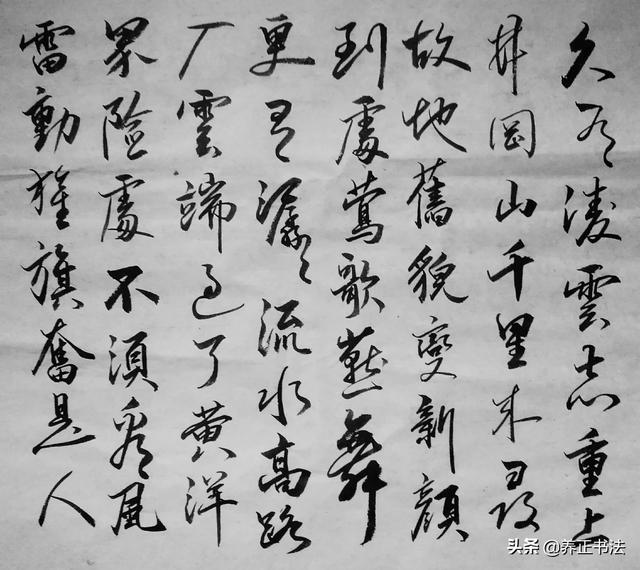 久有凌雲志重上
井岡山千里来尋
故地舊貌變新顔
到處鶯歌燕舞
更有潺々流水高路
入雲端過了黄洋
界險處不須看風
雷動旌旗奮是人
头条 @养正书法